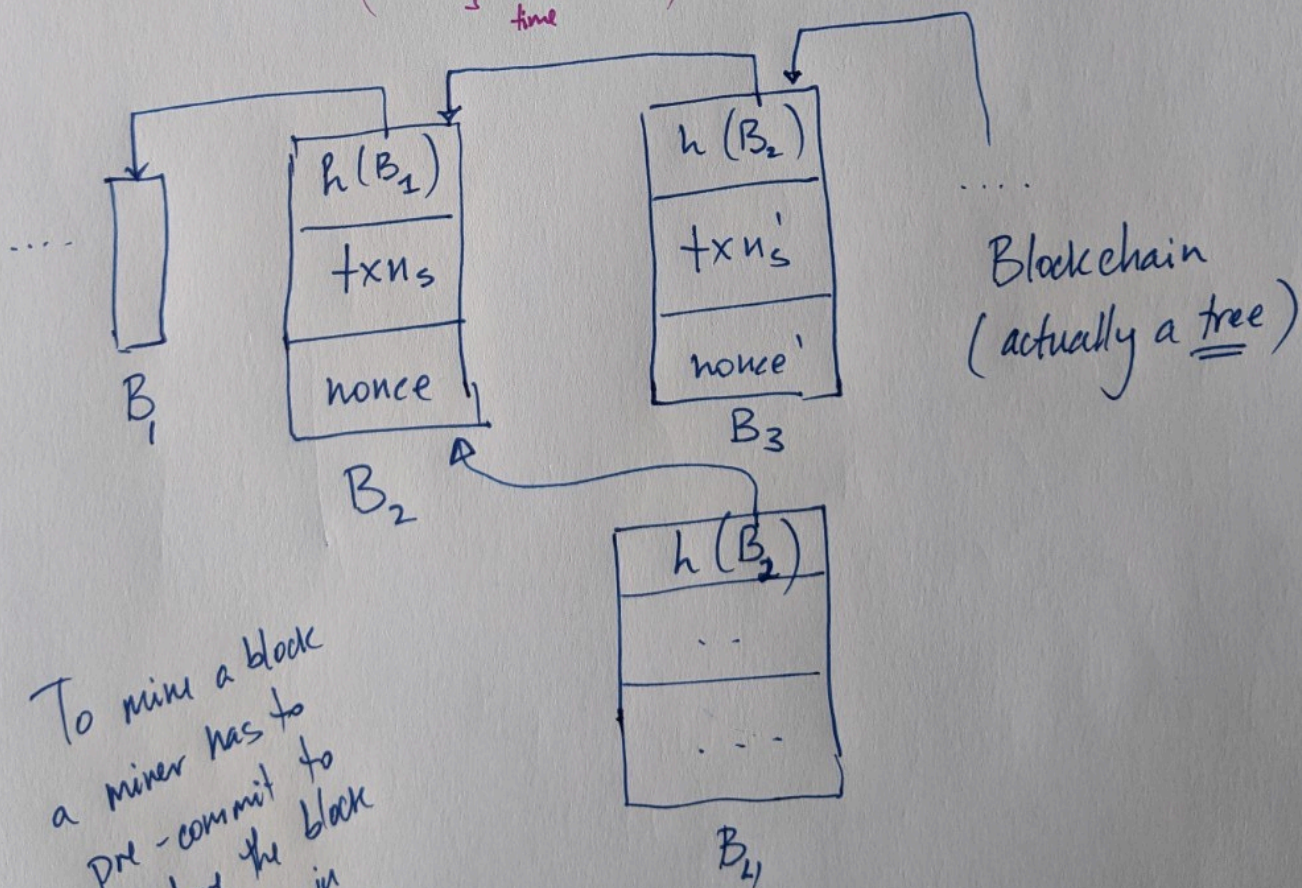 time
h(B₁)
txns
nonce
B₁
B₂
h(B₂)
txns'
nonce'
B₃
....
....
Blockchain
(actually a tree)
h(B₂)
..
....
B₄
To mine a block
a miner has to
pre-commit to
the block
in